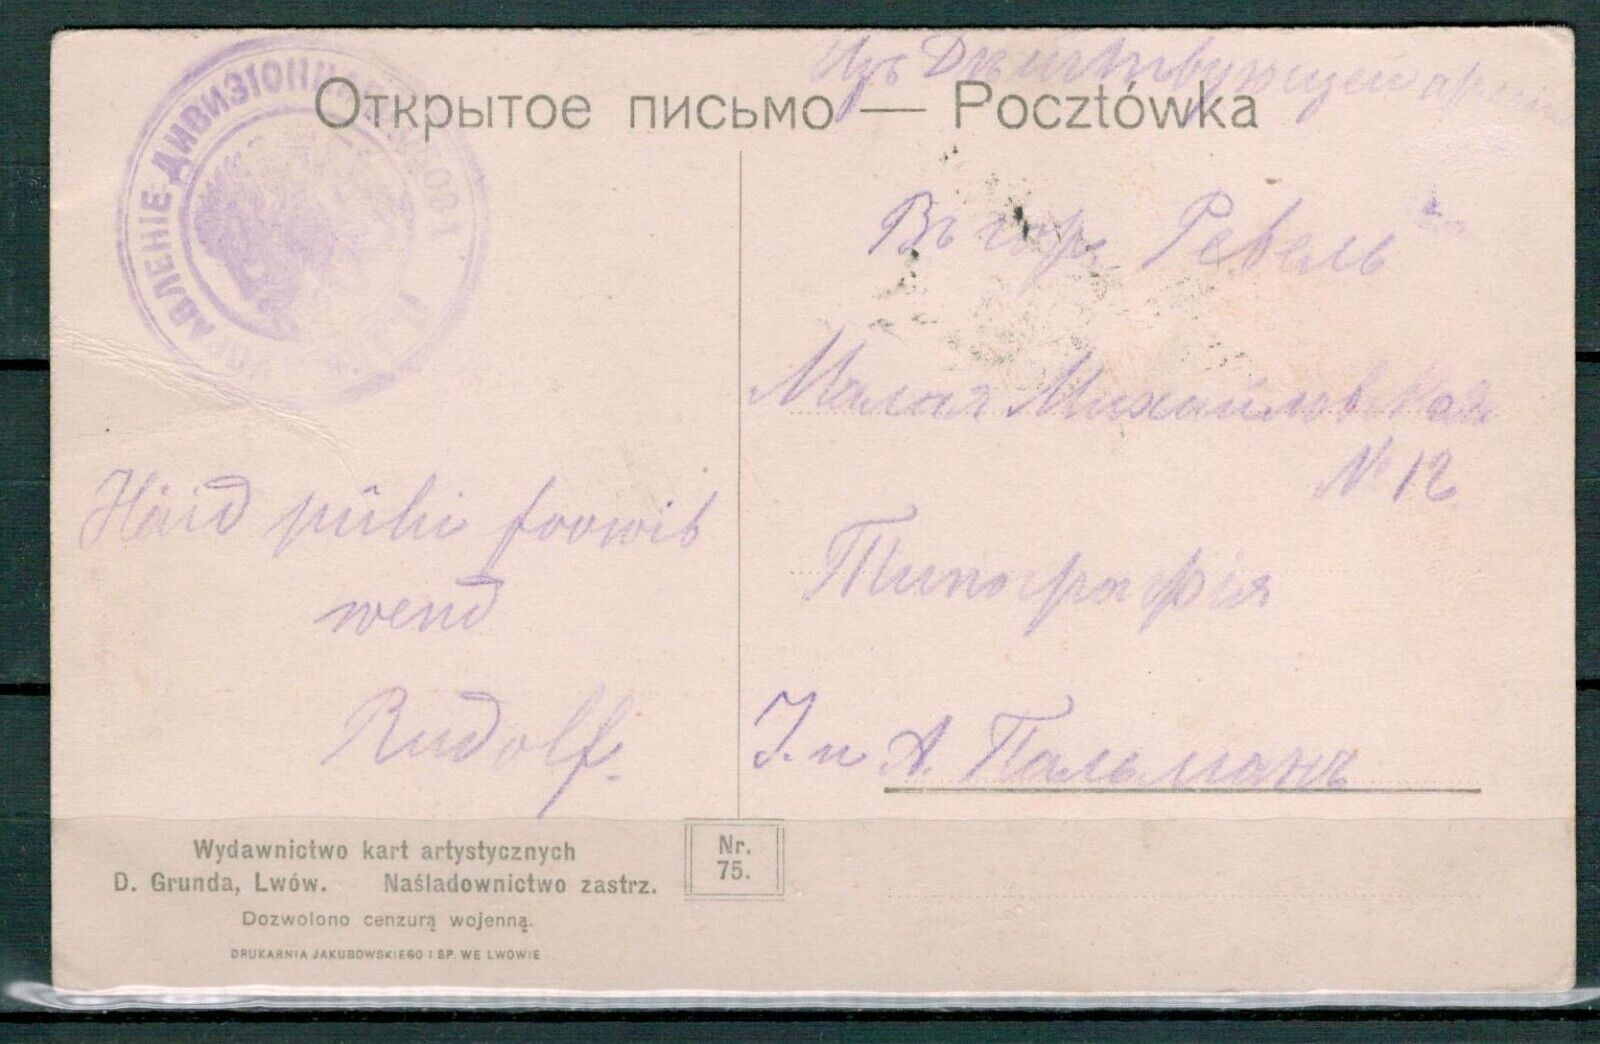 Изъ Действующей армiи
Открытое письмо — Pocztówka
УПРАВЛЕНІЕ ДИВИЗІОННАГО ОБОЗА
Въ гор. Ревель
Малая Михайловская
№ 12
Типографія
I. и А. Пальманъ
Häid pühi soowib
wend
Rudolf.
Wydawnictwo kart artystycznych
D. Grunda, Lwów. Naśladownictwo zastrz.
Dozwolono cenzurą wojenną.
DRUKARNIA JAKUBOWSKIEGO I SP. WE LWOWIE
Nr.
75.